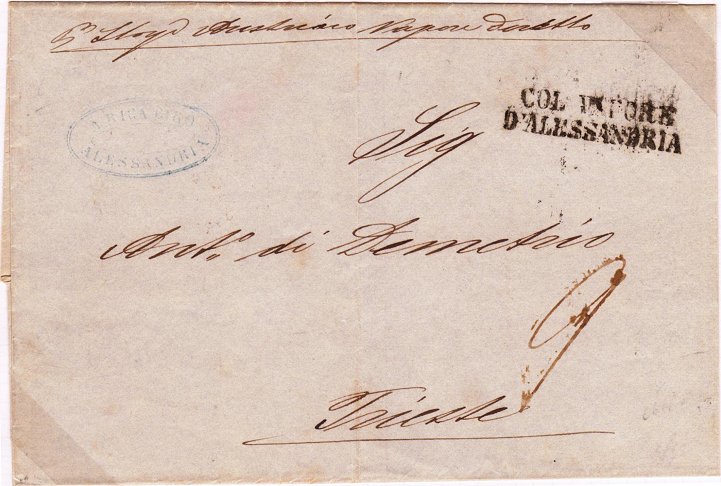 Pr Lloyd Austriaco Vapore Diretto
COL VAPORE
D'ALESSANDRIA
ALESSANDRIA
Sig
Anto. di Demetrio
9
Trieste